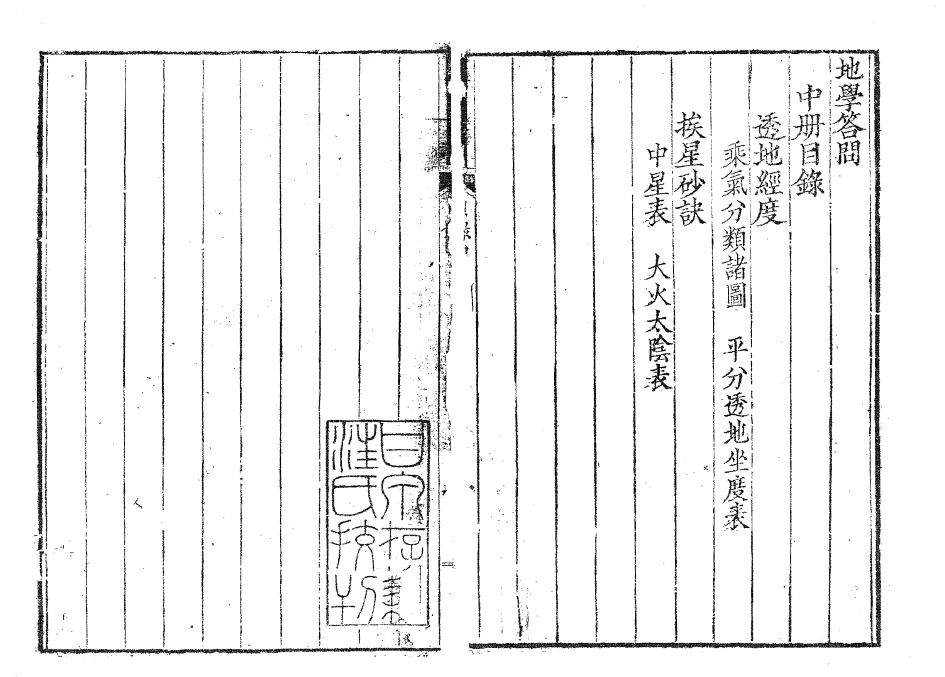 地學答問
中册目錄
透地經度
乘氣分類諸圖　平分透地坐度表
挨星砂訣
中星表　大火太陰表